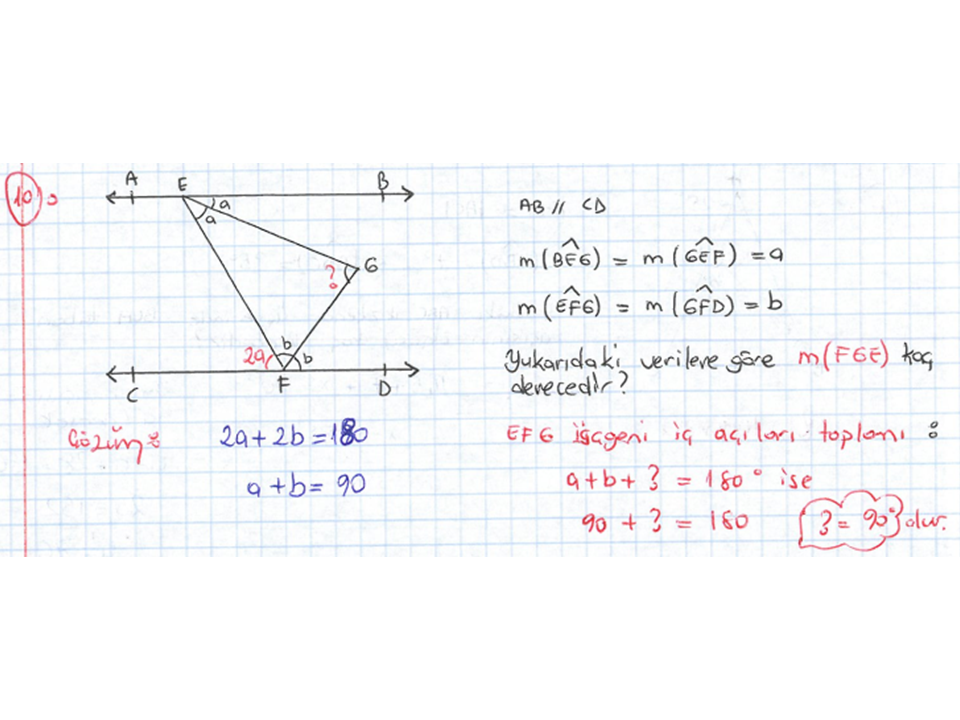 10)
A E B
a
a
G
?
2a b b
C F D
AB // CD
m(BEG) = m(GEF) = a
m(EFG) = m(GFD) = b
Yukarıdaki verilere göre m(FGE) kaç
derecedir?
Çözüm:
2a + 2b = 180
a + b = 90
EFG üçgeni iç açıları toplamı :
a + b + ? = 180° ise
90 + ? = 180
? = 90° olur.